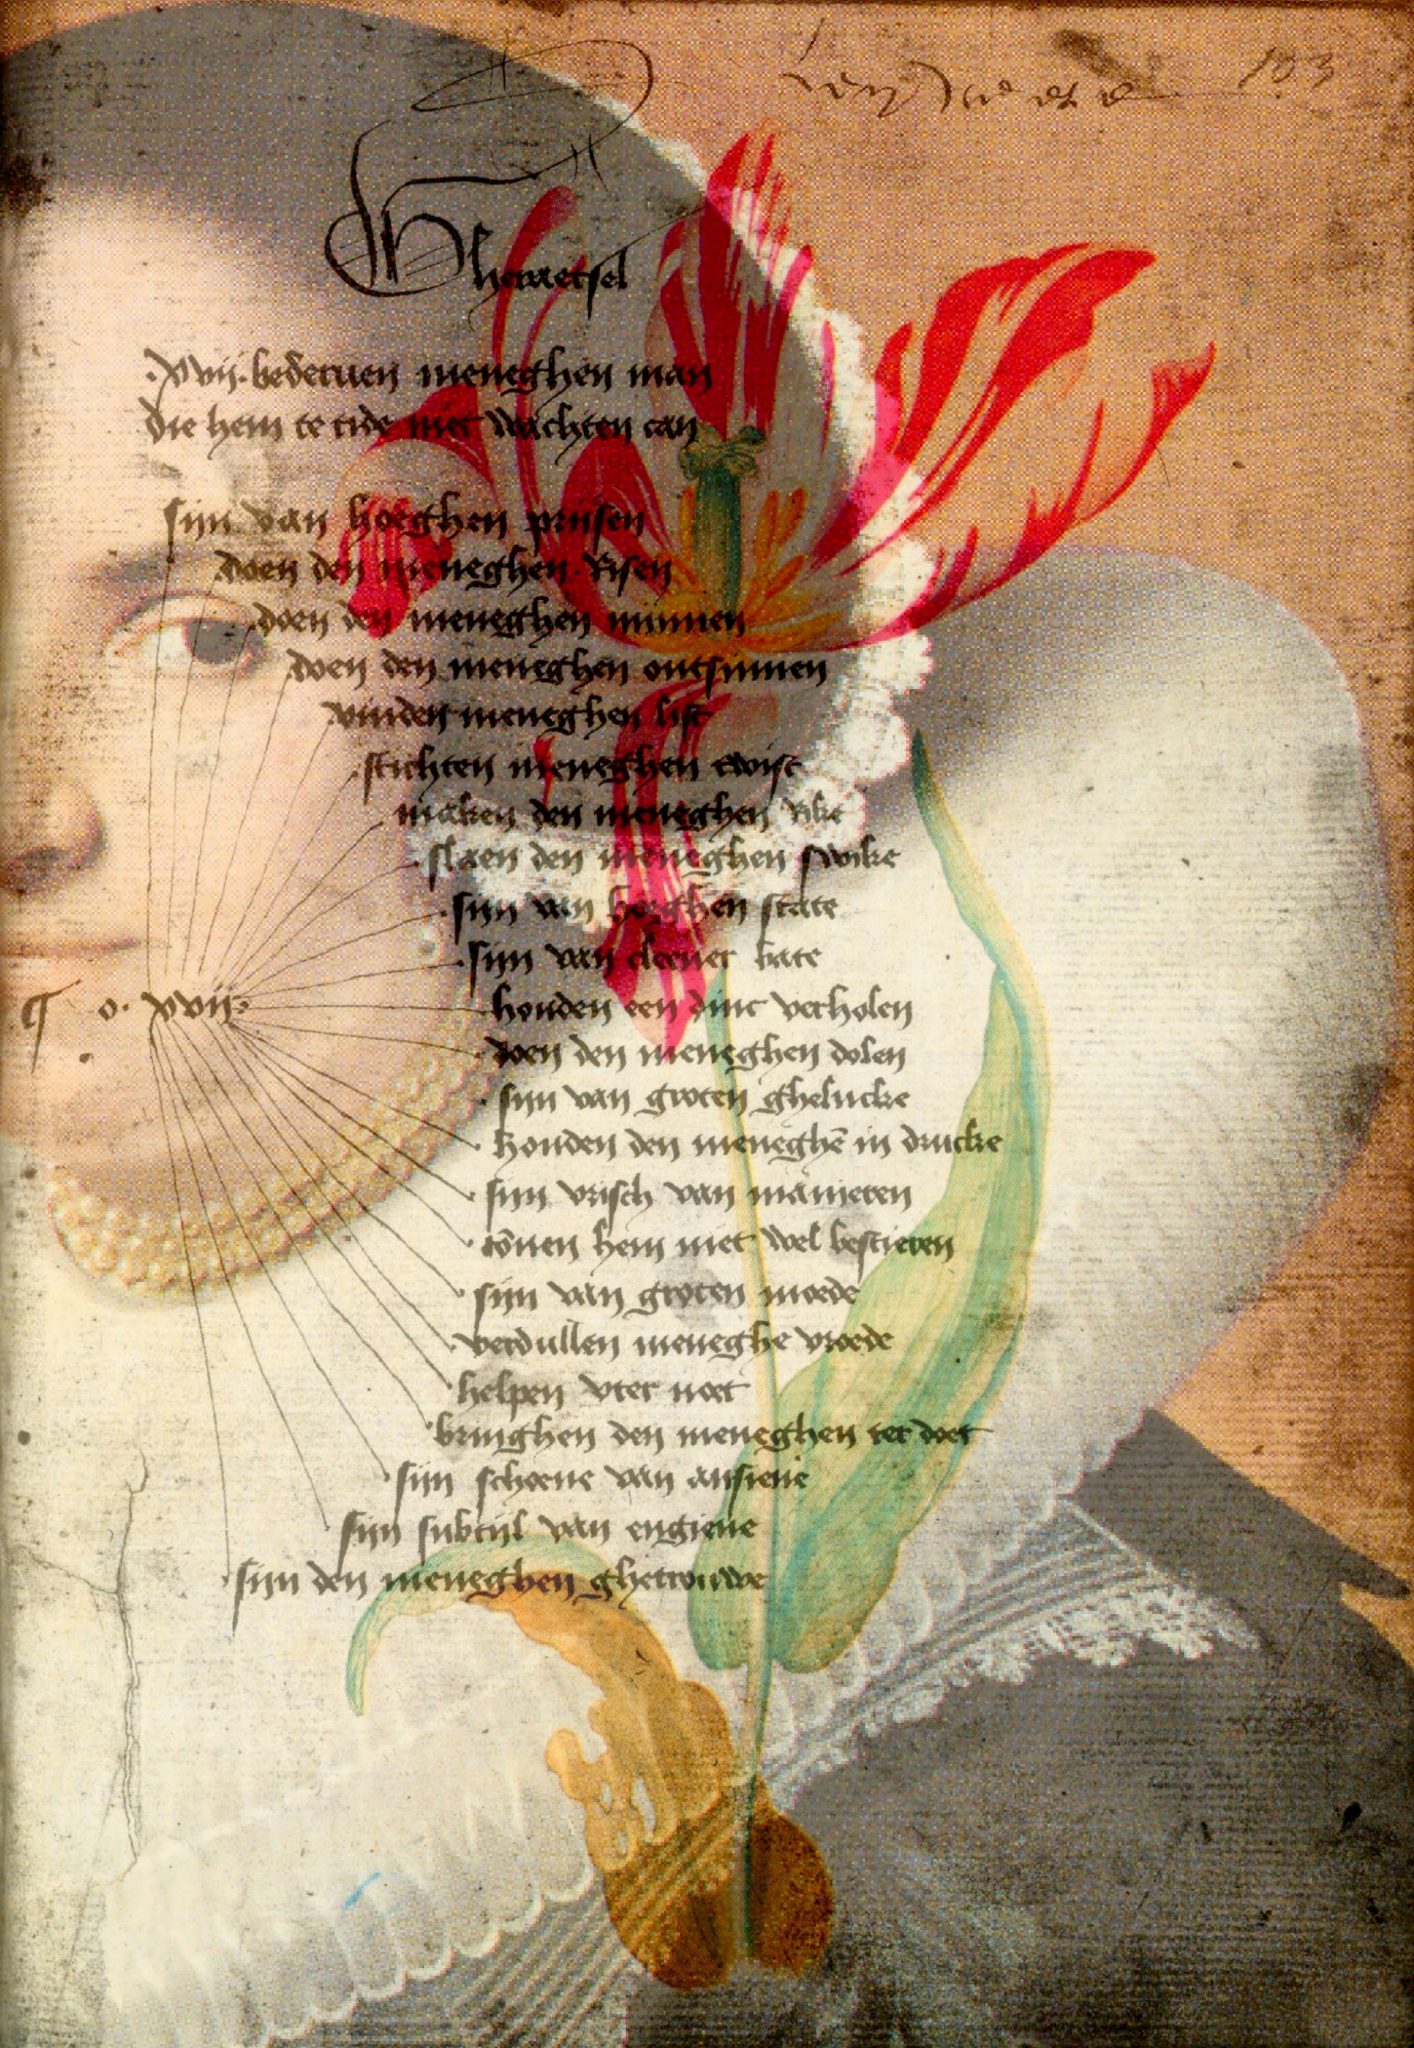 103
Gheraetsel
.xvij. bederuen meneghen man
die hem te tide niet wachten can
sijn van hoeghen prijsen
doen den meneghen risen
doen den meneghen minnen
doen den meneghen ontsinnen
vinden meneghen list
stichten meneghen twist
maken den meneghen rike
slaen den meneghen swike
sijn van hoeghen state
sijn van cleener bate
houden een dinc verholen
¶ o. xvij.
doen den meneghen dolen
sijn van groten ghelucke
houden den meneghē in drucke
sijn vrisch van manieren
cōnen hem niet wel bestieren
sijn van groten moede
verdullen meneghe vroede
helpen vter noet
bringhen den meneghen ter doet
sijn schoene van ansiene
sijn subtijl van engiene
sijn den meneghen ghetrouwe